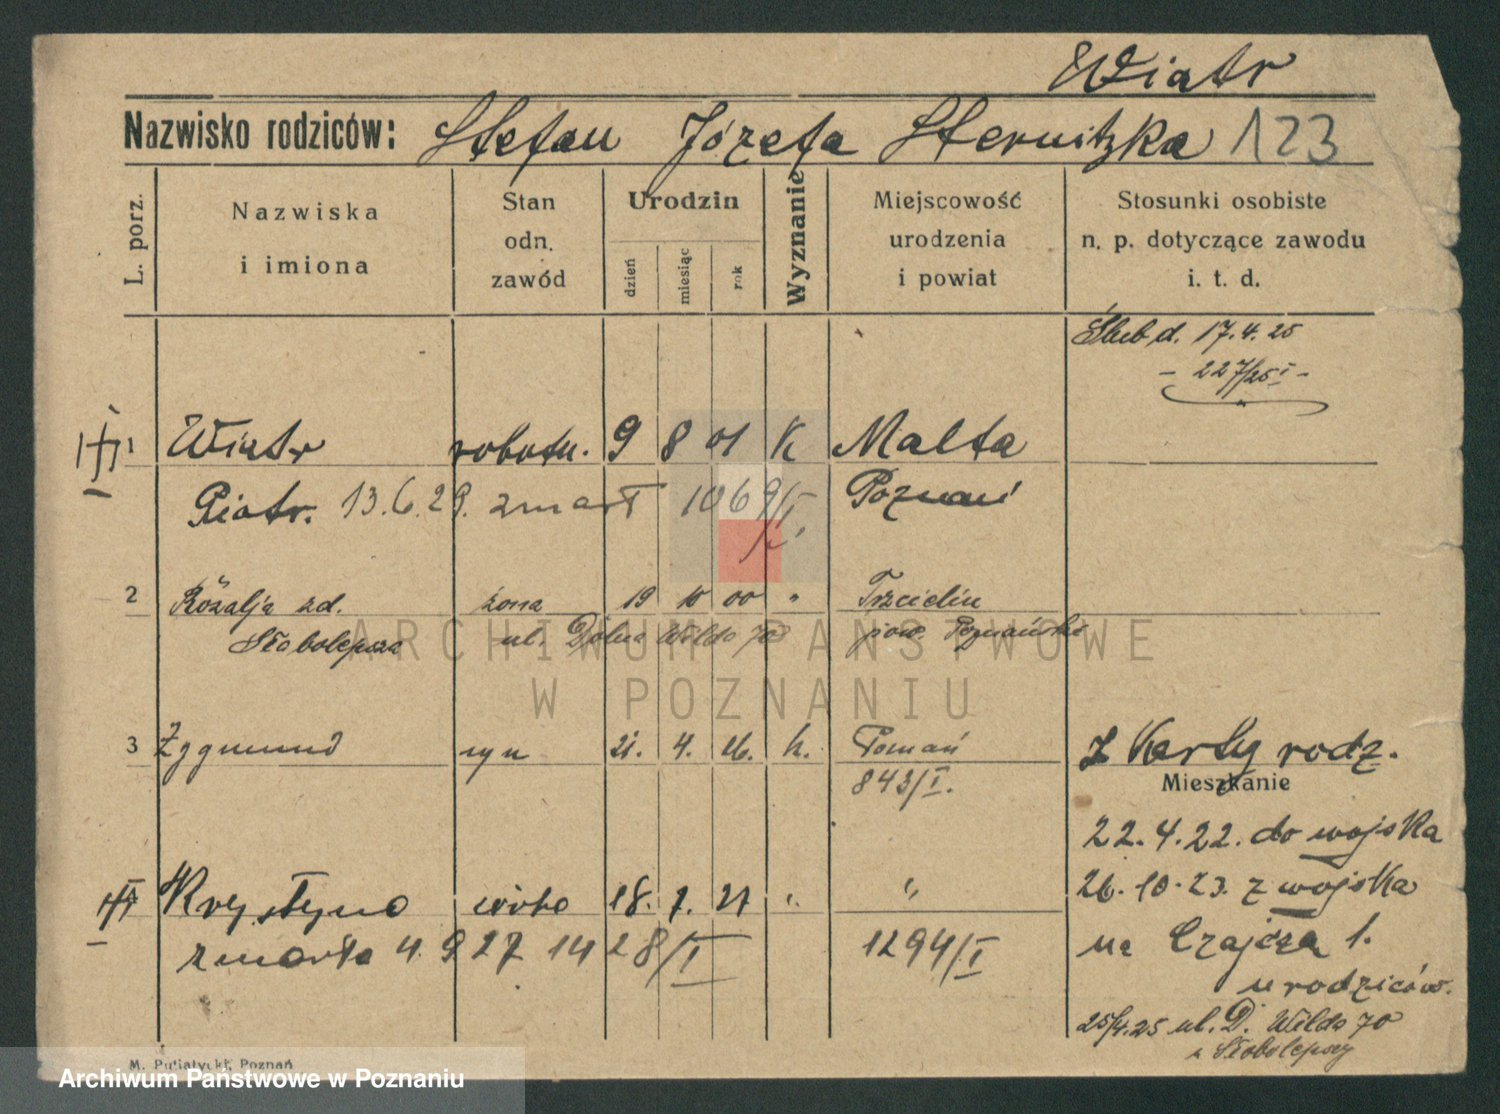 Wiatr
Nazwisko rodziców: Stefan Józefa Sternitzka 123
L. porz.
Nazwiska
i imiona
Stan
odn.
zawód
Urodzin
dzień
miesiąc
rok
Wyznanie
Miejscowość
urodzenia
i powiat
Stosunki osobiste
n. p. dotyczące zawodu
i. t. d.
Ślub d. 17.4.25
- 227/25 I -
1 Wiatr robotn. 9 8 01 K Malta
Piotr. 13.6.29. zmarł 1069/I Poznań
2 Rozalja zd. żona 19 10 00 " Trzcielin
Słabolepsza ul. Dolna Wilda 70 pow. Poznański
ARCHIWUM PAŃSTWOWE
W POZNANIU
3 Zygmund syn 21. 4. 26. k. Poznań Z Karty rodz.
843/I.
Mieszkanie
22.4.22. do wojska
Krystyna 18. 7. 27 " "
26.10.23. z wojska
zmarła 4.9 27 1428/I 1294/I
na Czajcza 1.
u rodziców.
25/4.25 ul. D. Wilda 70
u Słabolepszy
M. Putiatycki, Poznań
Archiwum Państwowe w Poznaniu